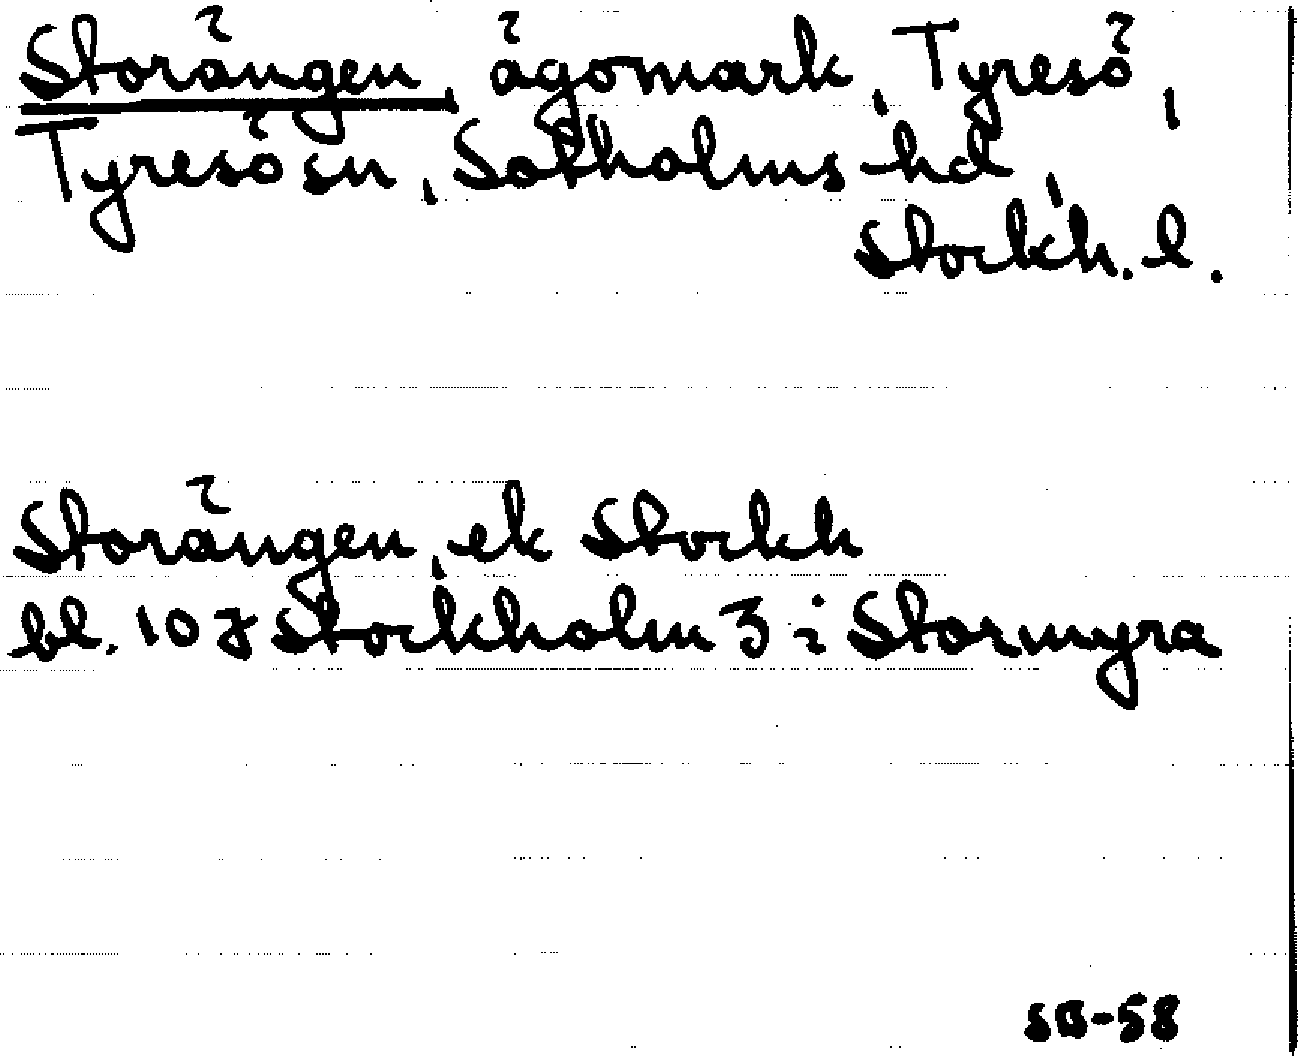 Storängen, ägomark, Tyresö,
Tyresö sn, Sotholms hd,
Stockh. l.
Storängen, ek Stockh
bl. 10 J Stockholm 3 i Stormyra
SB-58